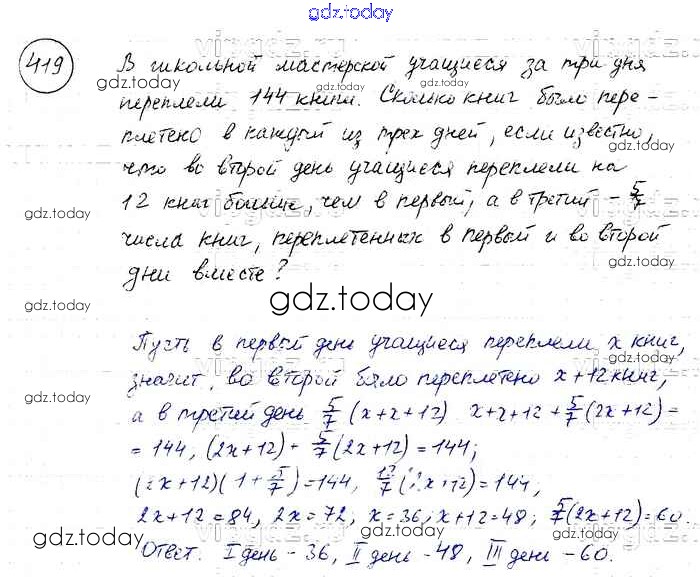 gdz.today
419
В школьной мастерской учащиеся за три дня
переплели 144 книги. Сколько книг было пере-
плетено в каждый из трех дней, если известно,
что во второй день учащиеся переплели на
12 книг больше, чем в первый, а в третий - 5/7
числа книг, переплетенных в первый и во второй
дни вместе?
gdz.today
Пусть в первый день учащиеся переплели x книг,
значит, во второй было переплетено x+12 книг,
а в третий день 5/7 (x+x+12) x+x+12+5/7(2x+12)=
=144, (2x+12)+ 5/7(2x+12)=144;
(2x+12)(1+5/7)=144, 12/7(2x+12)=144,
2x+12=84, 2x=72, x=36, x+12=48; 5/7(2x+12)=60.
Ответ. I день - 36, II день - 48, III день - 60.